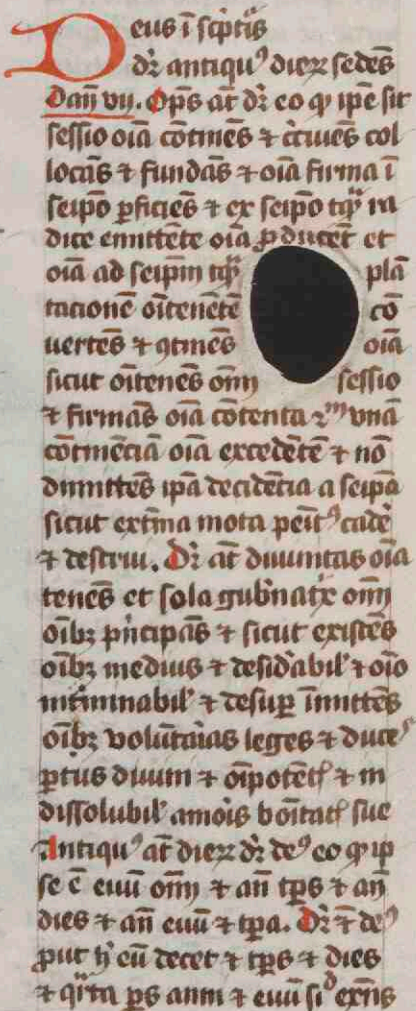 Deus ī sc͛ptis
dr̄ antiquꝰ dieꝝ sedēs
Dañ vij. Op̄s aūt dr̄ eo ꝙ ip̄e sit
sessio oīa cōtinēs ⁊ col
locās ⁊ fundās ⁊ oīa firma ī
seip̄o ꝑficiēs ⁊ ex seip̄o tqͣ ra
dice emittēte oīa ꝓducēt et
oīa ad seip̄m tqͣ plā
tacionē oītenētē cō
uertēs ⁊ ꝯtinēs oīa
sicut oītenēs om̄i sessio
⁊ firmās oīa cōtenta ẜm vnā
cōtinēciā oīa excedētē ⁊ nō
dimittēs ip̄a decidētia a seip̄a
sicut mota peītꝰ cadē
⁊ destrui. Dr̄ at̄ diuinitas oīa
tenēs et sola gub̄natͥx om̄i
oībꝫ pͥncipās ⁊ sicut existēs
oībꝫ mediis ⁊ desid̓abil̓ ⁊ oīo
⁊ desuꝑ īmittēs
oībꝫ volūtaīas leges ⁊ dulceˢ
ꝑtus diuum ⁊ oīpotētꝭ ⁊ in
dissolubil̓ amoīs boītatꝭ sue
Antiquꝰ at̄ dieꝝ dr̄ deꝰ eo ꝙ ip
se ē euū om̄i ⁊ añ tp̄s ⁊ añ
dies ⁊ añ euū ⁊ tp̄a. Dr̄ ⁊ deꝰ
ꝓut decet ⁊ tp̄s ⁊ dies
⁊ ⁊ euū